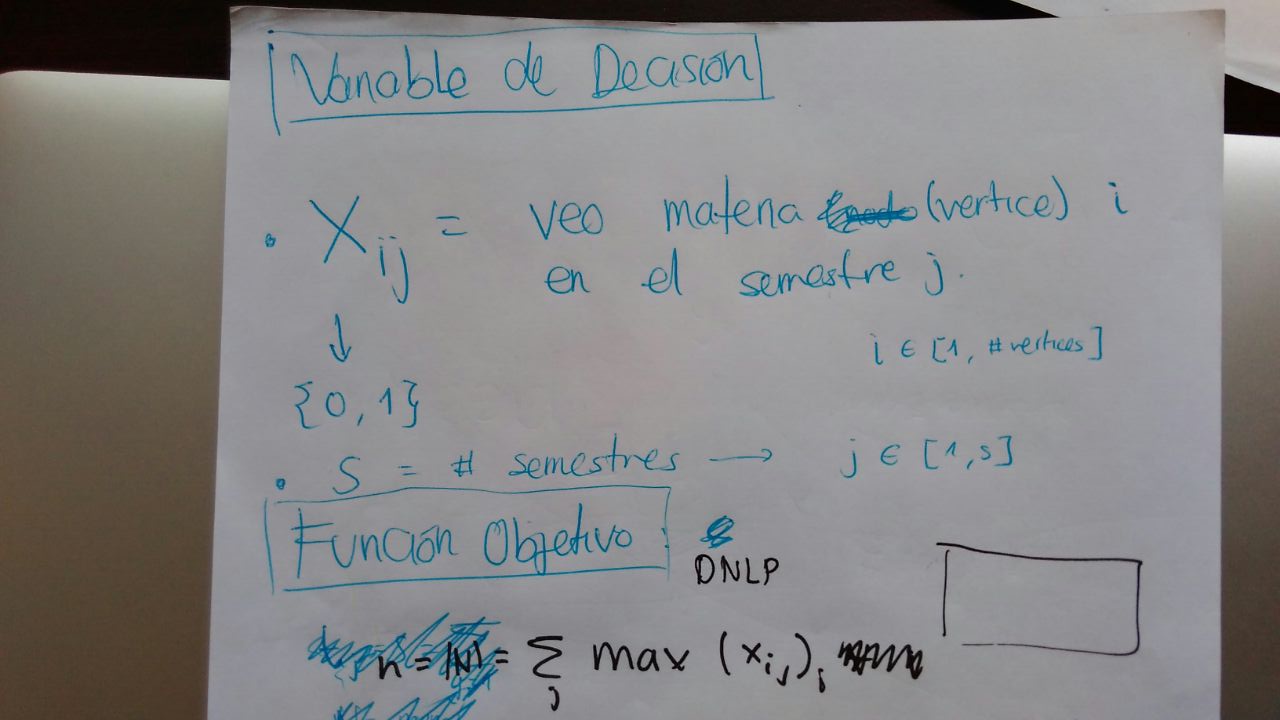 Variable de Decisión
• Xij = veo materia (vertice) i
en el semestre j.
↓
i ∈ [1, #vertices]
{0, 1}
• S = # semestres → j ∈ [1, s]
Función Objetivo:
DNLP
n = |N| = Σj max (xij)i